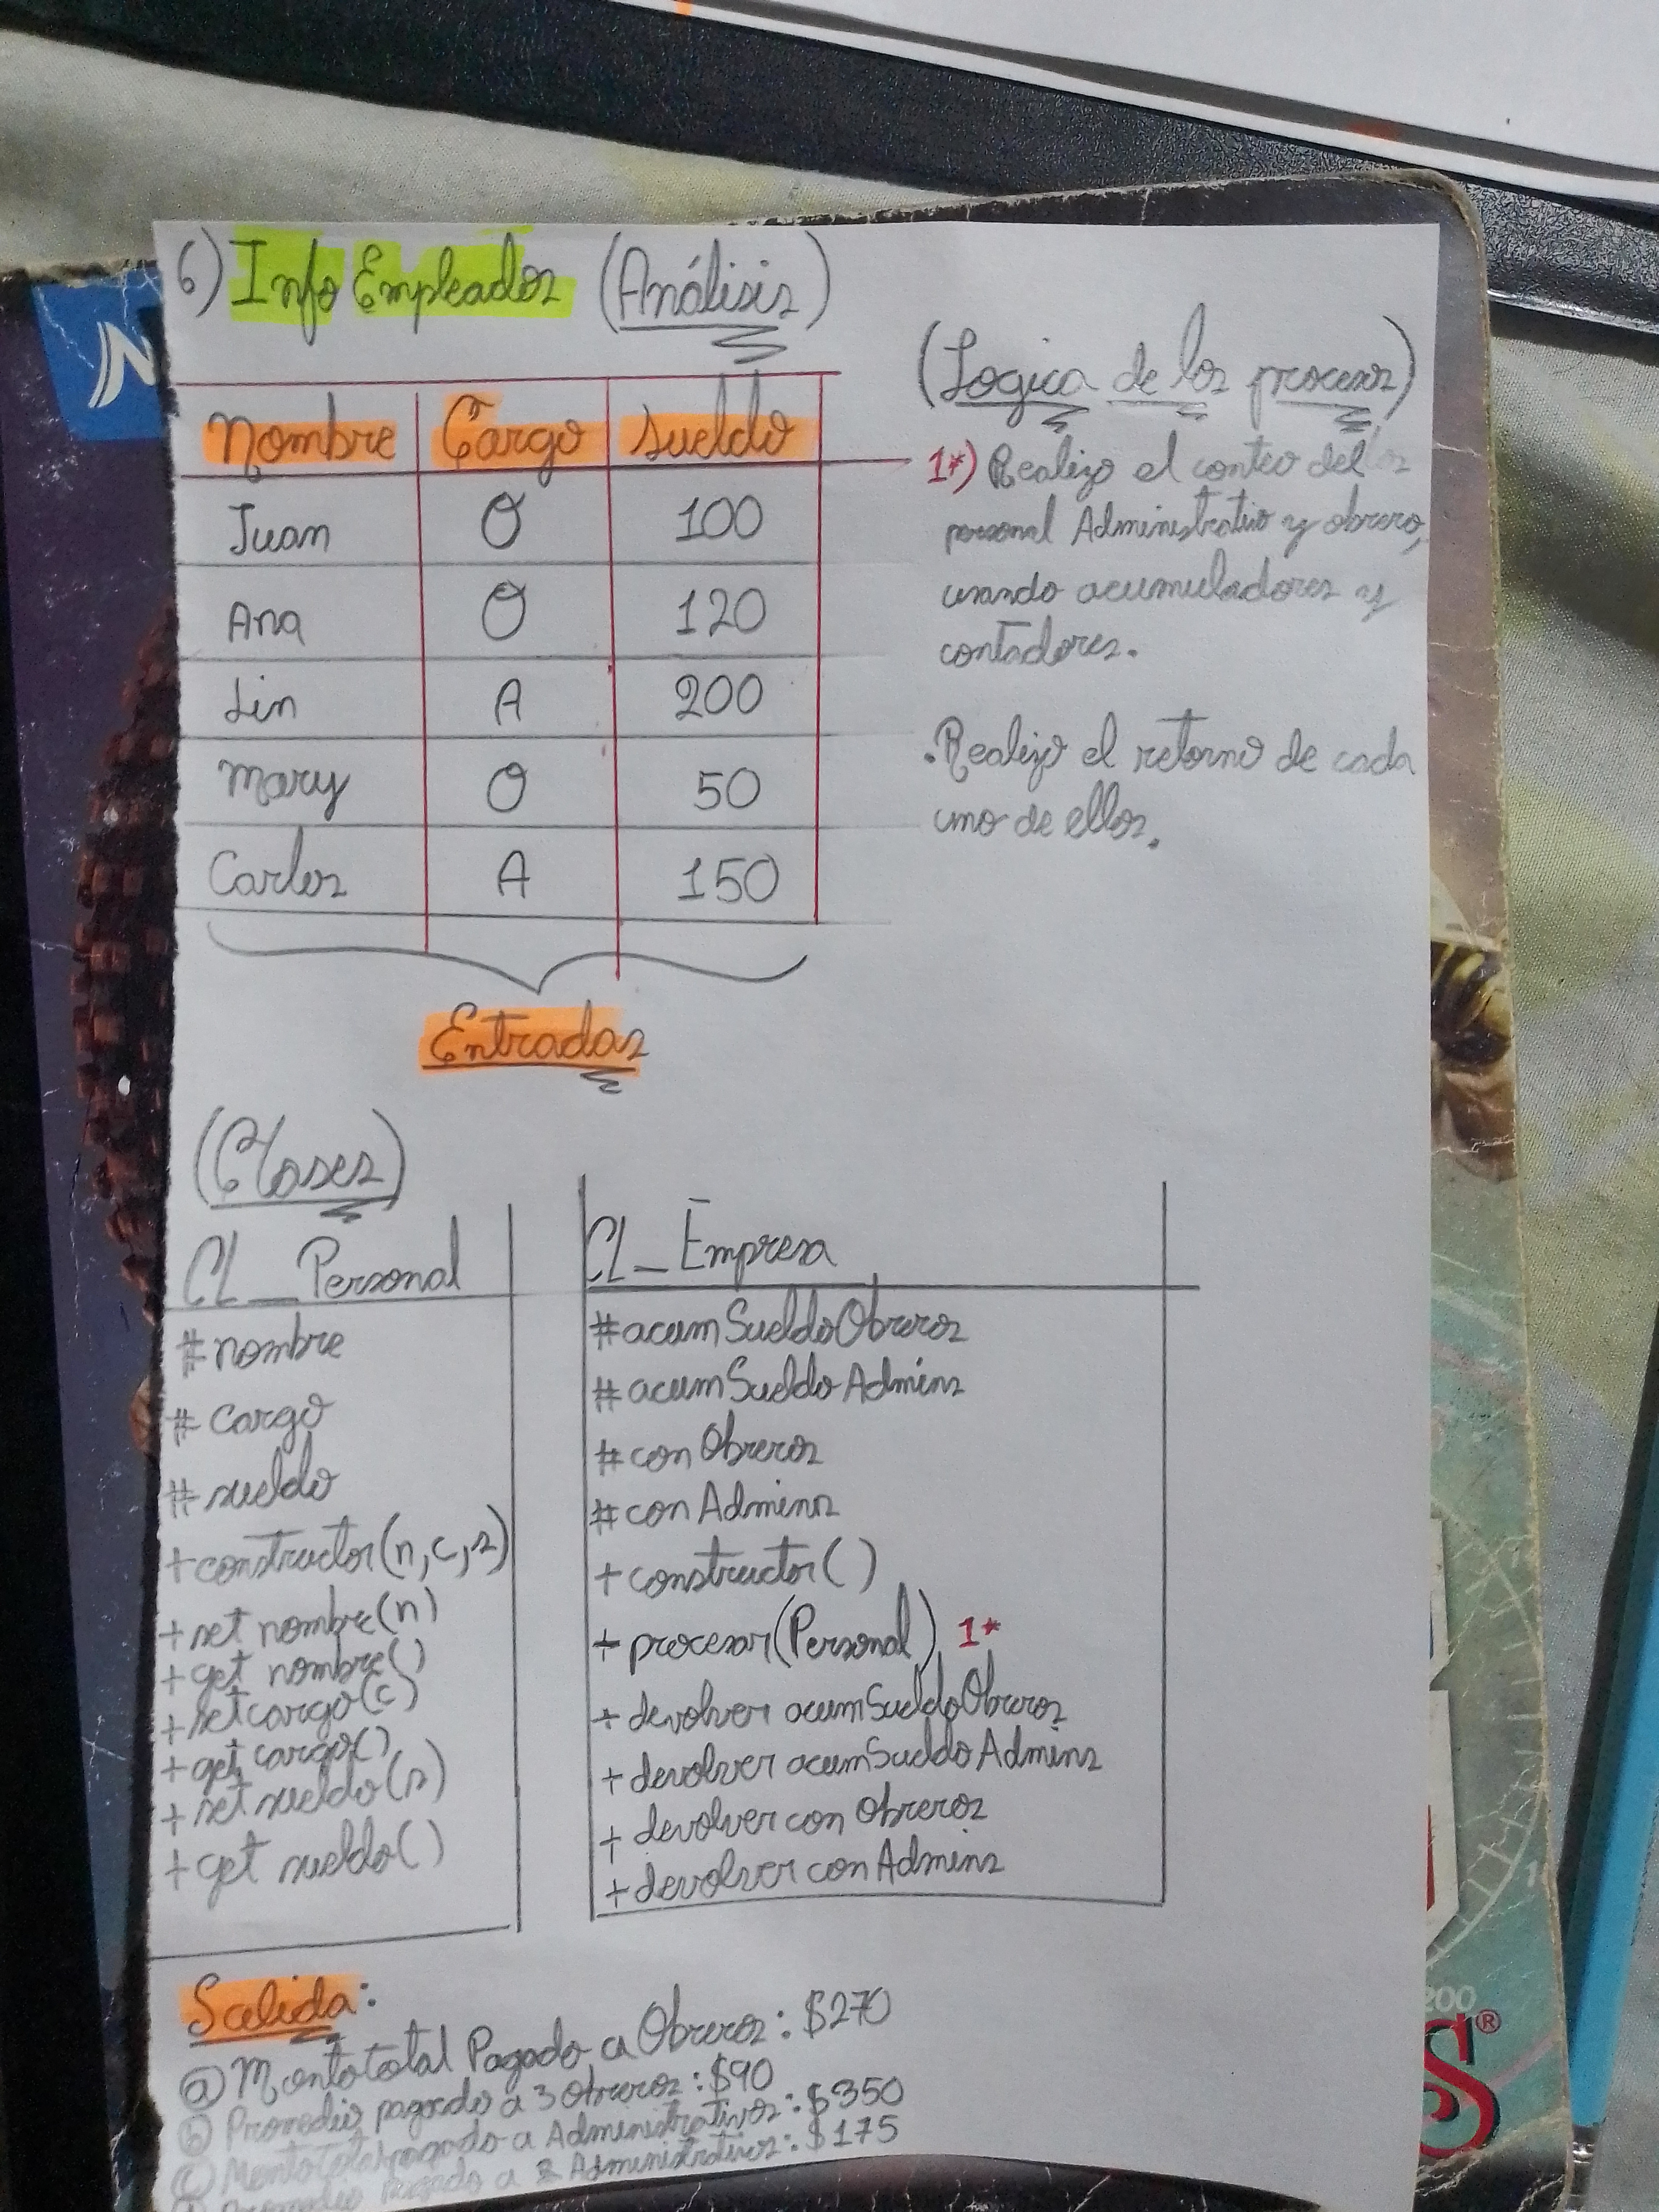 6) Info Empleados (Análisis)
Nombre Cargo sueldo
Juan O 100
Ana O 120
Lin A 200
Mary O 50
Carlos A 150
Entradas
(Logica de los procesos)
1*) Realizo el conteo del
personal Administrativo y obrero,
usando acumuladores y
contadores.
.Realizo el retorno de cada
uno de ellos.
(Clases)
CL_Personal
#nombre
#cargo
#sueldo
+constructor(n,c,s)
+set nombre(n)
+get nombre()
+set cargo(c)
+get cargo()
+set sueldo(s)
+get sueldo()
CL_Empresa
#acumSueldoObreros
#acumSueldoAdmins
#conObreros
#conAdmins
+constructor()
+procesar(Personal) 1*
+devolver acumSueldoObreros
+devolver acumSueldoAdmins
+devolver conObreros
+devolver conAdmins
Salida:
ⓐ Monto total Pagado a Obreros: $270
ⓑ Promedio pagado a 3 Obreros: $90
ⓒ Monto Total pagado a Administrativos: $350
Promedio pagado a 2 Administrativos: $175
200
S®
N